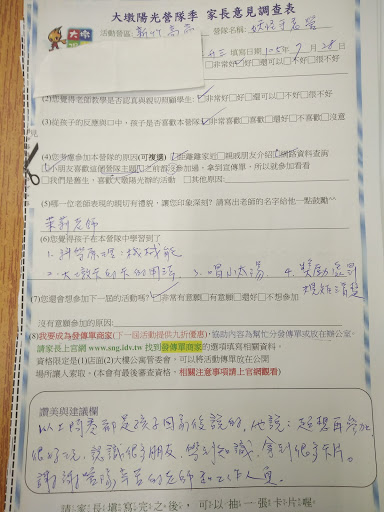 大墩陽光營隊季 家長意見調查表
大墩
活動營區:新竹高商 營隊名稱:
填寫日期:105年7月28日
□非常好□好□還可以□不好□很不好
(2)您覺得老師教學是否認真與親切照顧學生:□非常好□好□還可以□不好□很不好
(3)從孩子的反應與口中,孩子是否喜歡本營隊:□非常喜歡□喜歡□還好□不喜歡□沒意
見
(4)您考慮參加本營隊的原因(可複選)□距離離家近□親戚朋友介紹□網路資料查詢
□小朋友喜歡這個營隊主題□之前都有參加過,拿到宣傳單,所以就參加看看
□我們是舊生,喜歡大墩陽光辦的活動 □其他原因:
(5)哪一位老師表現的親切有禮貌,讓您印象深刻?請寫出老師的名字給他一點鼓勵^^
茉莉老師
(6)您覺得孩子在本營隊中學習到了
1. 科學原理、機械能
3. 唱小太陽 4. 獎勵處罰
規矩清楚
(7)您還會想參加下一屆的活動嗎?□非常有意願□有意願□還好□不想參加
沒有意願參加的原因:
(8)我要成為發傳單商家(下一屆活動提供九折優惠),協助內容為幫忙分發傳單或放在辦公室。
請家長上官網 www.sng.idv.tw 找到發傳單商家的選項填寫相關資料。
資格限定是(1)店面(2)大樓公寓管委會,可以將活動傳單放在公開
場所讓人索取。(本會有最後審查資格,相關注意事項請上官網觀看)
讚美與建議欄
以上問卷都是孩子回家後說的,他說:超想再參加
很好玩,認識很多朋友,學到知識,拿到很多卡片。
謝謝營隊辛苦的老師和工作人員。
請家長填寫完之後,可以抽一張卡片喔